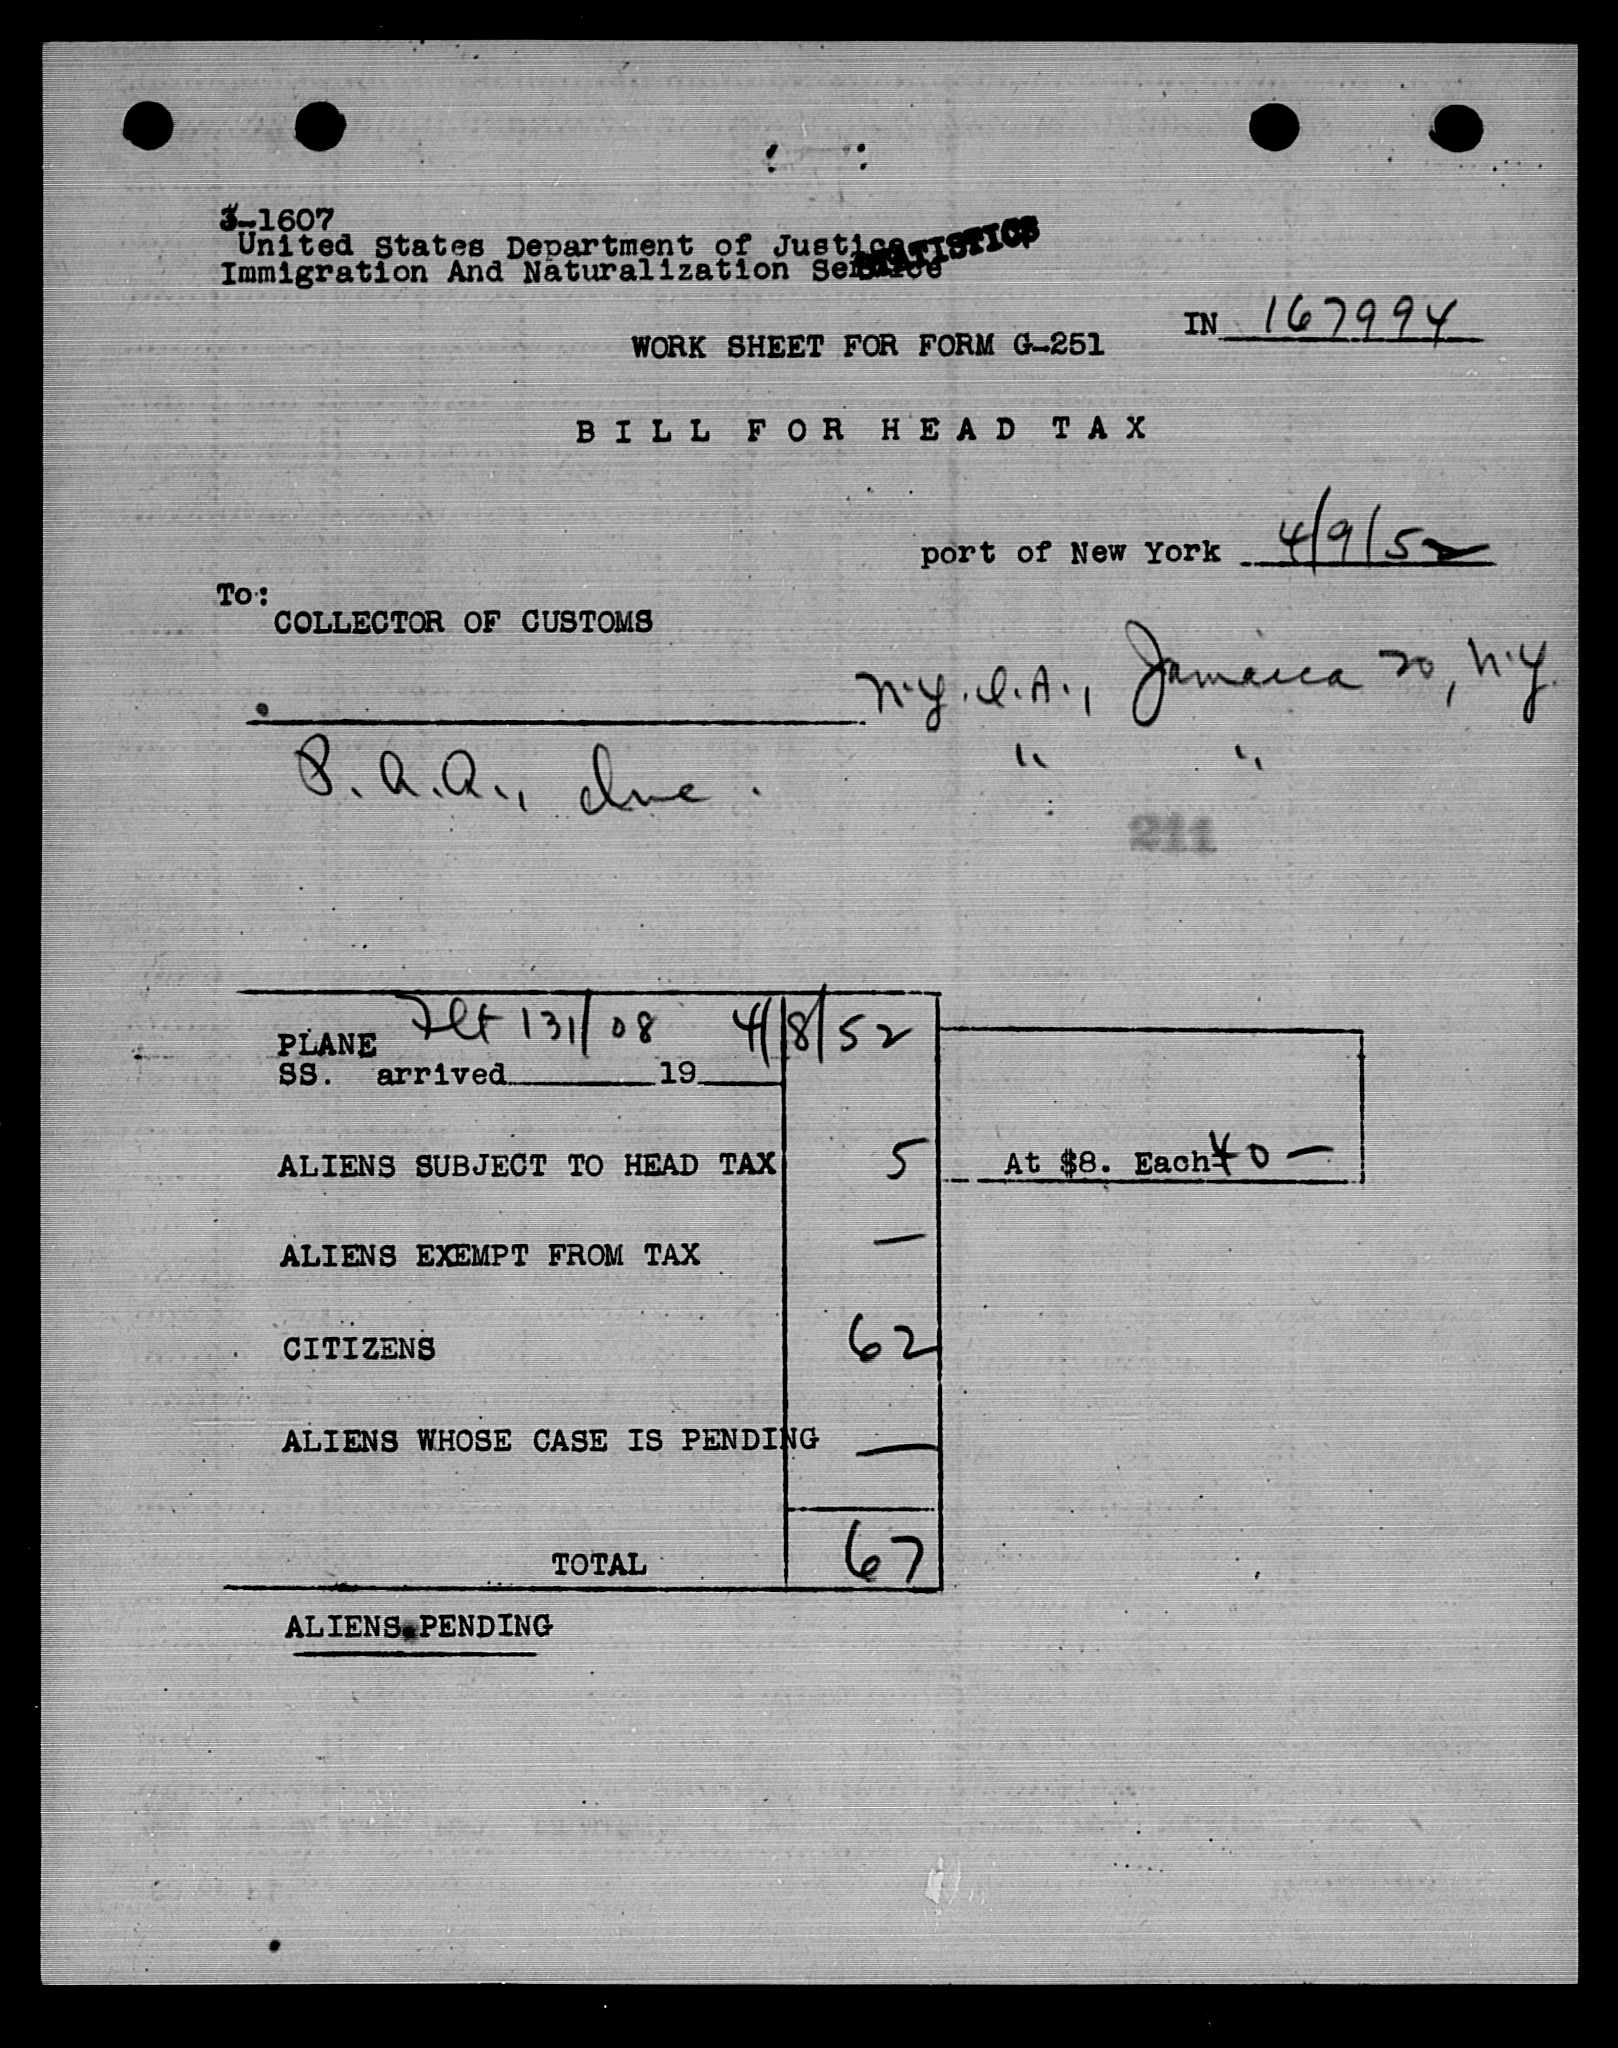 3-1607
United States Department of Justice
STATISTICS
Immigration And Naturalization Service
IN 167994
WORK SHEET FOR FORM G-251
BILL FOR HEAD TAX
port of New York 4/9/52
To:
COLLECTOR OF CUSTOMS
N.Y.I.A., Jamaica 20, N.Y.
P.A.A., Inc. " "
211
PLANE Flt 131/08 4/8/52
SS. arrived 19
ALIENS SUBJECT TO HEAD TAX 5 At $8. Each 40 —
ALIENS EXEMPT FROM TAX —
CITIZENS 62
ALIENS WHOSE CASE IS PENDING —
TOTAL 67
ALIENS PENDING